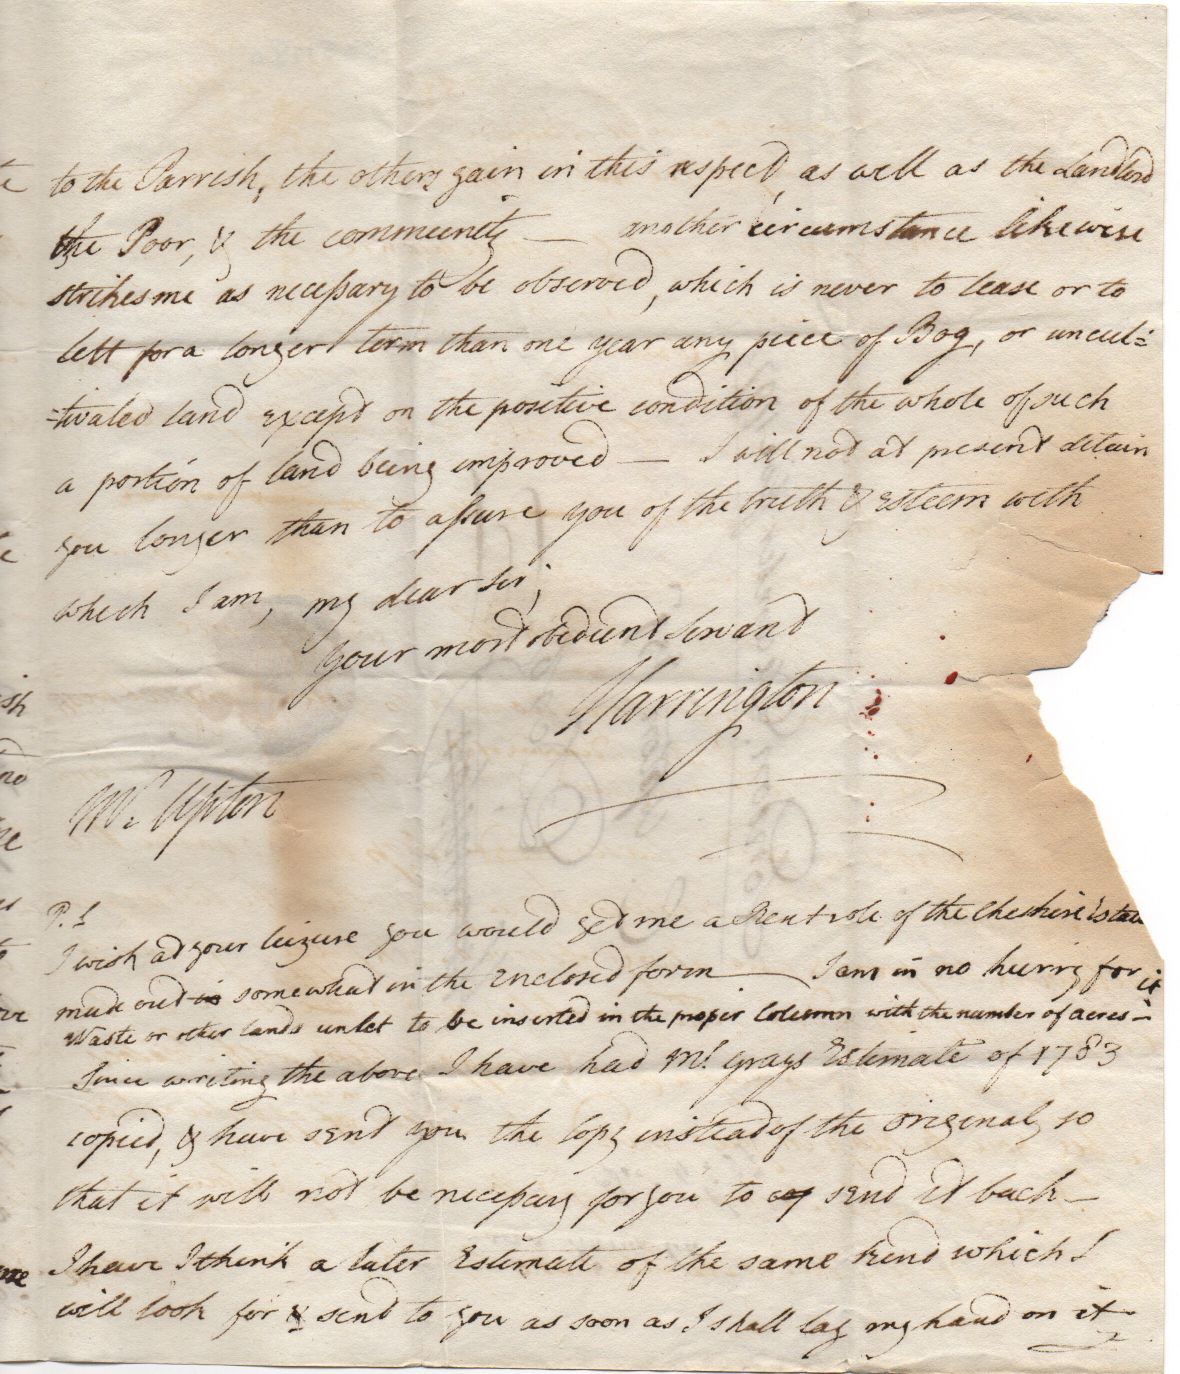 to the Parrish, the others gain in this respect, as well as the Landlord
the Poor, & the community — another circumstance likewise
strikes me as necessary to be observed, which is never to lease or to
lett for a longer term than one year any piece of Bog, or uncul=
=tivated land except on the positive condition of the whole of such
a portion of land being improved — I will not at present detain
you longer than to assure you of the truth & esteem with
which I am, my dear Sir;
your most obedient Servant
Harrington
Mr. Upton
P.S
I wish at your leizure you would get me a Rent role of the Cheshire Estate
made out in somewhat in the enclosed form — I am in no hurry for it
Waste or other lands unlet to be inserted in the proper Column with the number of acres —
Since writing the above I have had Mr. Grays Estimate of 1783
copied, & have sent you the copy instead of the original, so
that it will not be necessary for you to send it back —
I have I think a later Estimate of the same kind which I
will look for & send to you as soon as I shall lay my hand on it